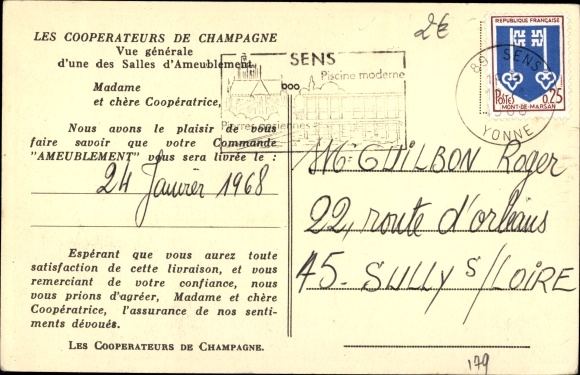 LES COOPERATEURS DE CHAMPAGNE
Vue générale
d'une des Salles d'Ameublement
Madame
et chère Coopératrice,
Nous avons le plaisir de vous
faire savoir que votre Commande
"AMEUBLEMENT" vous sera livrée le :
24 Janvier 1968
Espérant que vous aurez toute
satisfaction de cette livraison, et vous
remerciant de votre confiance, nous
vous prions d'agréer, Madame et chère
Coopératrice, l'assurance de nos senti-
ments dévoués.
LES COOPERATEURS DE CHAMPAGNE.
2€
SENS
Piscine moderne
89 SENS
YONNE
REPUBLIQUE FRANÇAISE
POSTES
0,25
MONT-DE-MARSAN
Mr GUILBON Roger
22, route d'orléans
45. SULLY S/LOIRE
179